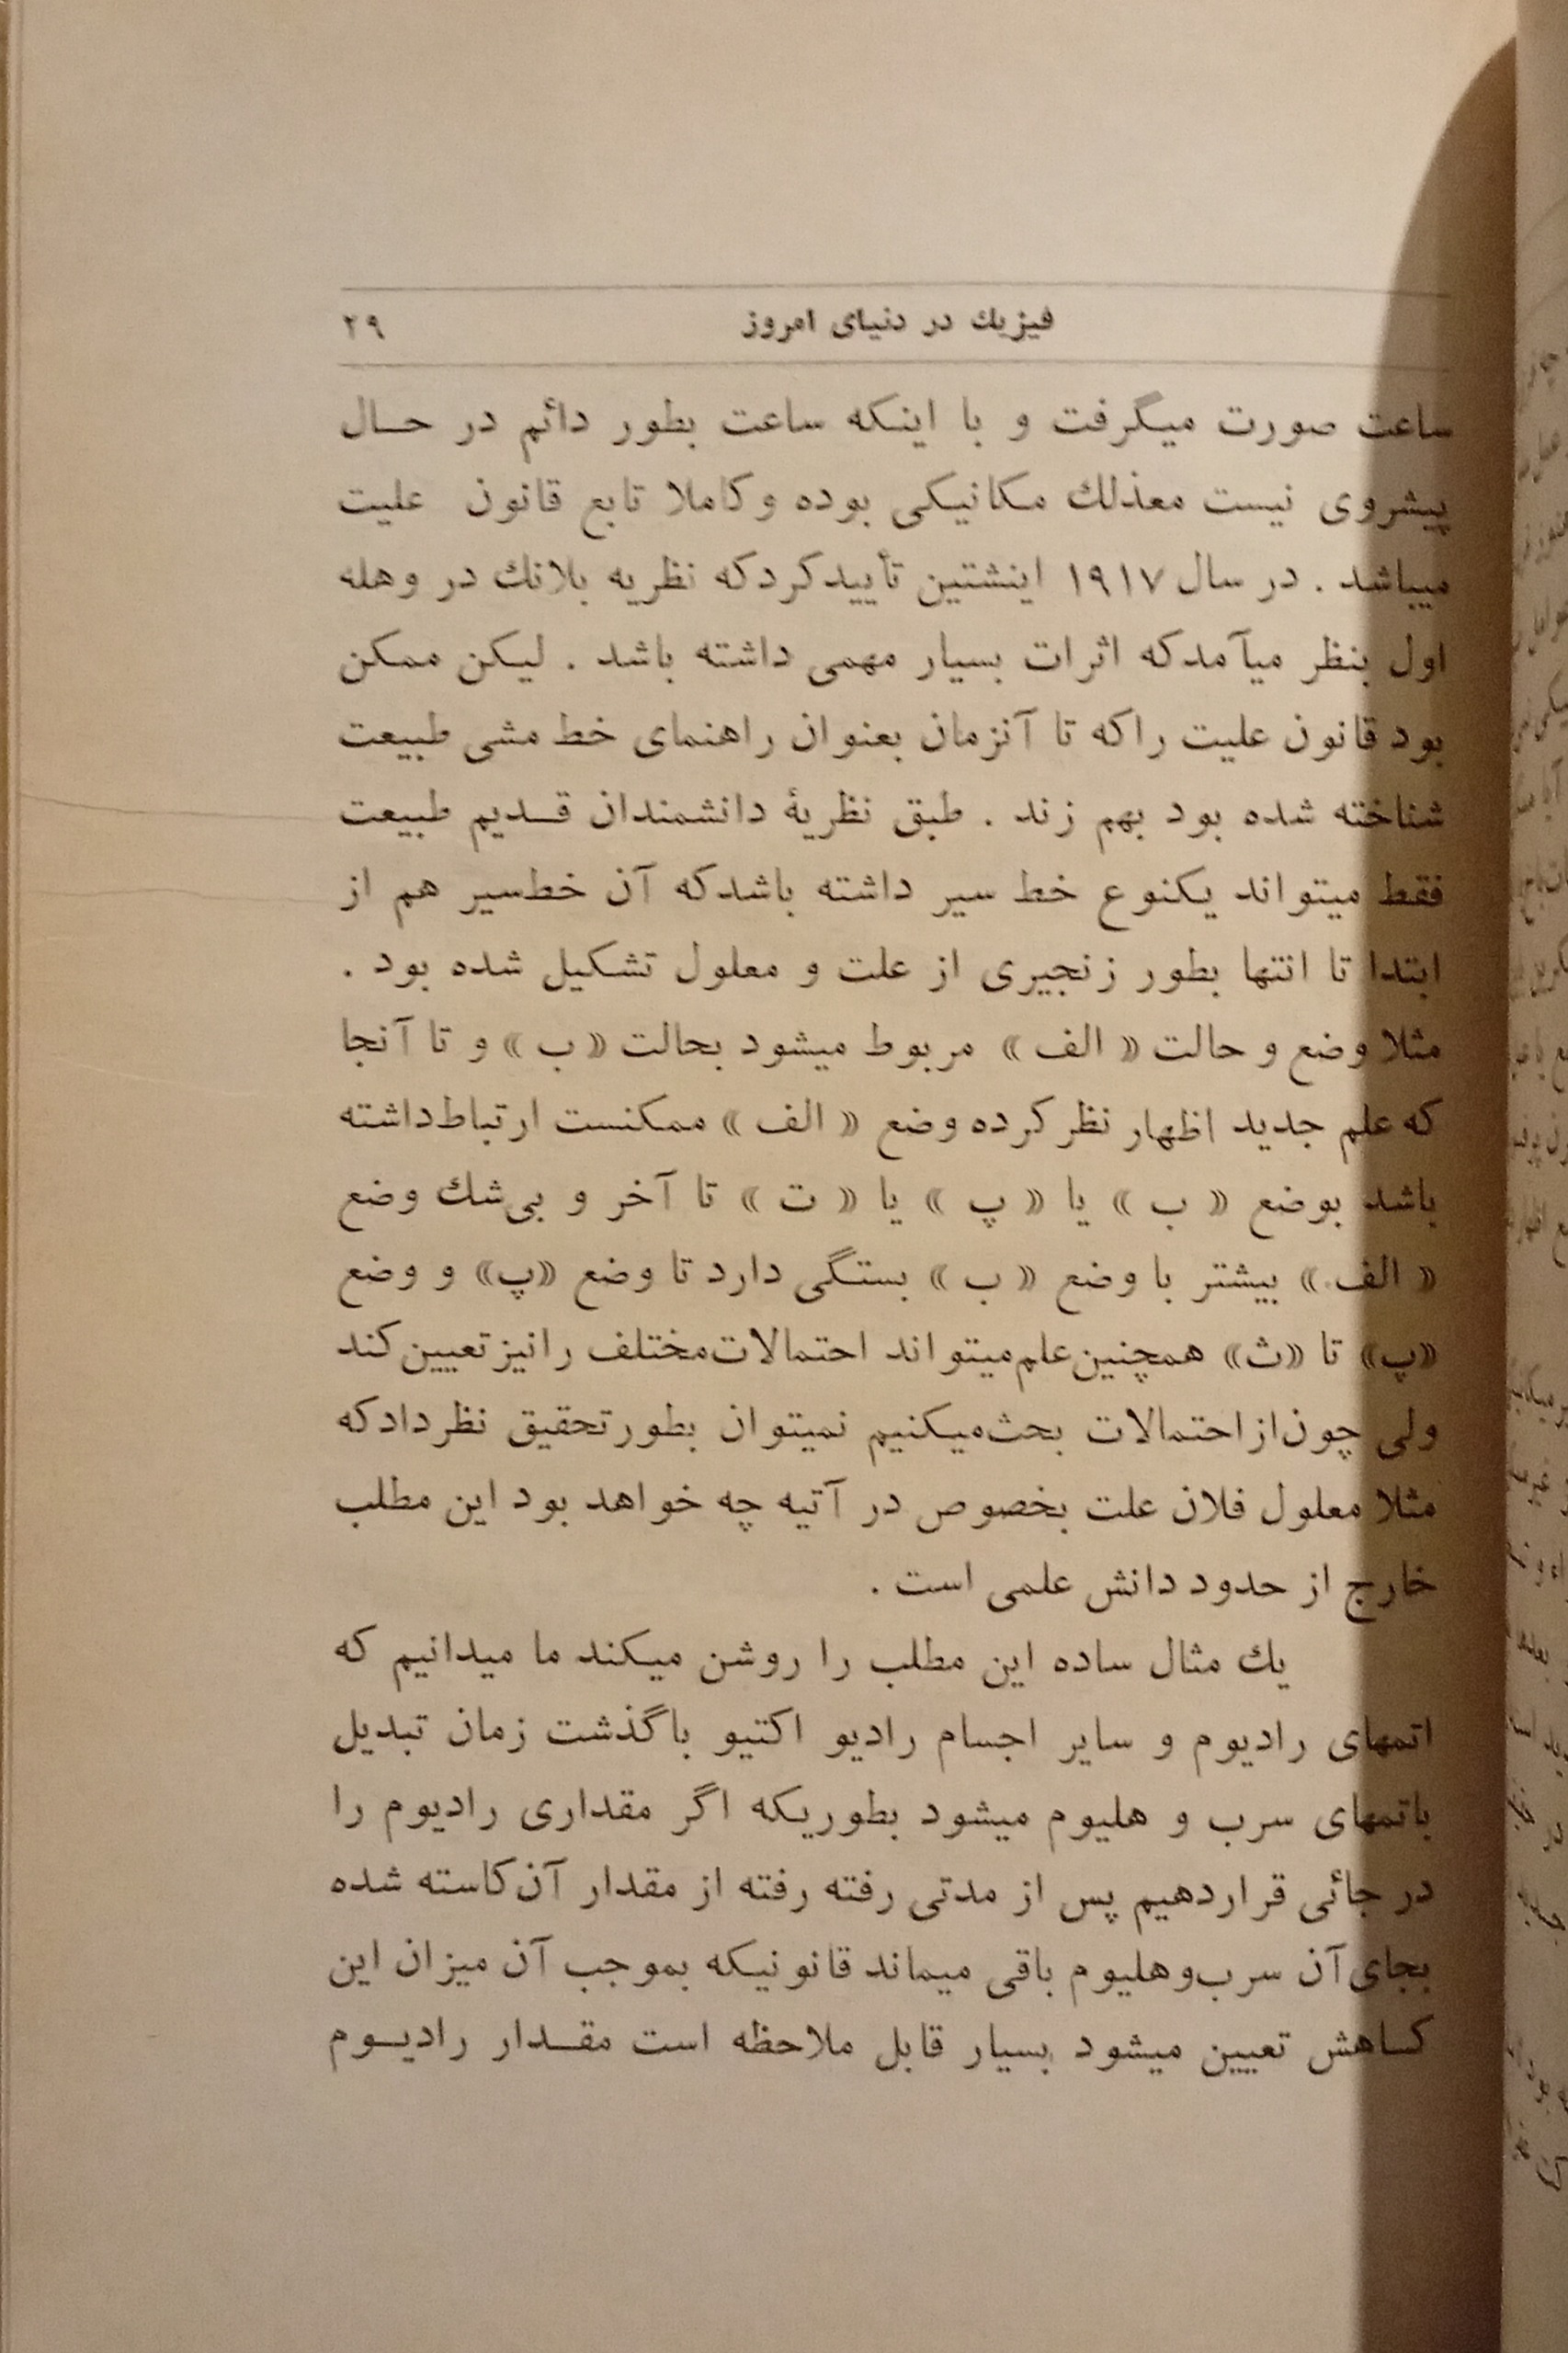 فیزیك در دنیای امروز ۲۹
ساعت صورت میگرفت و با اینکه ساعت بطور دائم در حال
پیشروی نیست معذلك مکانیکی بوده و کاملا تابع قانون علیت
میباشد . در سال ۱۹۱۷ اینشتین تأیید کرد که نظریه پلانك در وهله
اول بنظر میآمد که اثرات بسیار مهمی داشته باشد . لیکن ممکن
بود قانون علیت را که تا آنزمان بعنوان راهنمای خط مشی طبیعت
شناخته شده بود بهم زند . طبق نظریهٔ دانشمندان قدیم طبیعت
فقط میتواند یکنوع خط سیر داشته باشد که آن خط‌سیر هم از
ابتدا تا انتها بطور زنجیری از علت و معلول تشکیل شده بود .
مثلا وضع و حالت « الف » مربوط میشود بحالت « ب » و تا آنجا
که علم جدید اظهار نظر کرده وضع « الف » ممکنست ارتباط داشته
باشد بوضع « ب » یا « پ » یا « ت » تا آخر و بی‌شك وضع
« الف » بیشتر با وضع « ب » بستگی دارد تا وضع «پ» و وضع
«پ» تا «ث» همچنین علم میتواند احتمالات مختلف را نیز تعیین کند
ولی چون از احتمالات بحث میکنیم نمیتوان بطور تحقیق نظر داد که
مثلا معلول فلان علت بخصوص در آتیه چه خواهد بود این مطلب
خارج از حدود دانش علمی است .
یك مثال ساده این مطلب را روشن میکند ما میدانیم که
اتمهای رادیوم و سایر اجسام رادیو اکتیو با گذشت زمان تبدیل
باتمهای سرب و هلیوم میشود بطوریکه اگر مقداری رادیوم را
در جائی قرار دهیم پس از مدتی رفته رفته از مقدار آن کاسته شده
بجای آن سرب و هلیوم باقی میماند قانونیکه بموجب آن میزان این
کاهش تعیین میشود بسیار قابل ملاحظه است مقدار رادیوم